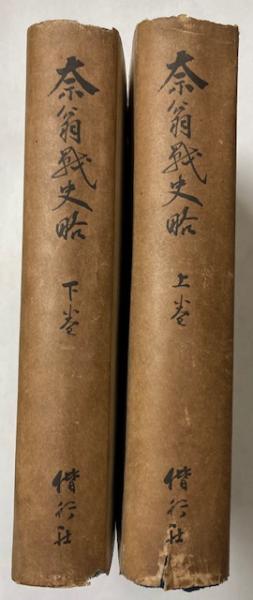 奈翁戰史略
上巻
偕行社
奈翁戰史略
下巻
偕行社